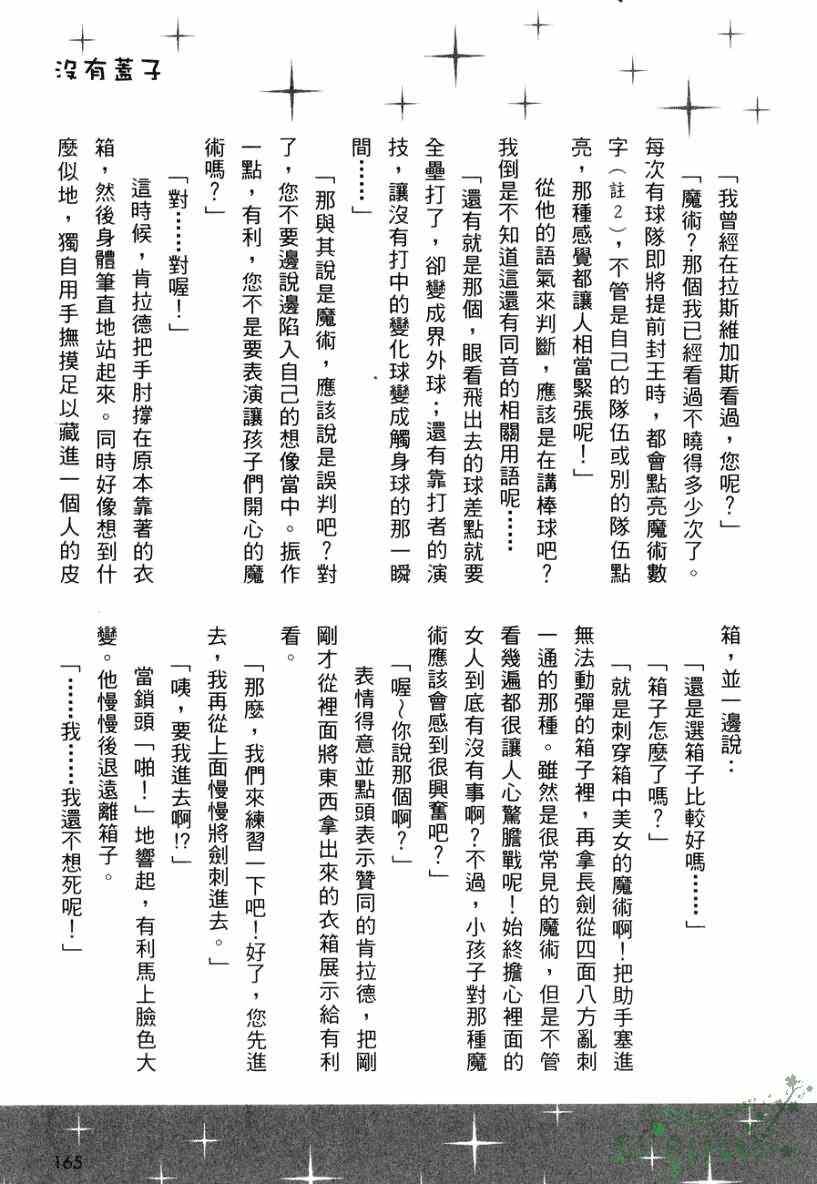 沒有蓋子
「我曾經在拉斯維加斯看過，您呢？」
「魔術？那個我已經看過不曉得多少次了。
每次有球隊即將提前封王時，都會點亮魔術數
字（註2），不管是自己的隊伍或別的隊伍點
亮，那種感覺都讓人相當緊張呢！」
從他的語氣來判斷，應該是在講棒球吧？
我倒是不知道這還有同音的相關用語呢……
「還有就是那個，眼看飛出去的球差點就要
全壘打了，卻變成界外球；還有靠打者的演
技，讓沒有打中的變化球變成觸身球的那一瞬
間……」
「那與其說是魔術，應該說是誤判吧？對
了，您不要邊說邊陷入自己的想像當中。振作
一點，有利，您不是要表演讓孩子們開心的魔
術嗎？」
「對……對喔！」
這時候，肯拉德把手肘撐在原本靠著的衣
箱，然後身體筆直地站起來。同時好像想到什
麼似地，獨自用手撫摸足以藏進一個人的皮
箱，並一邊說：
「還是選箱子比較好嗎……」
「箱子怎麼了嗎？」
「就是刺穿箱中美女的魔術啊！把助手塞進
無法動彈的箱子裡，再拿長劍從四面八方亂刺
一通的那種。雖然是很常見的魔術，但是不管
看幾遍都很讓人心驚膽戰呢！始終擔心裡面的
女人到底有沒有事啊？不過，小孩子對那種魔
術應該會感到很興奮吧？」
「喔～你說那個啊？」
表情得意並點頭表示贊同的肯拉德，把剛
剛才從裡面將東西拿出來的衣箱展示給有利
看。
「那麼，我們來練習一下吧！好了，您先進
去，我再從上面慢慢將劍刺進去。」
「咦，要我進去啊!?」
當鎖頭「啪！」地響起，有利馬上臉色大
變。他慢慢後退遠離箱子。
「……我……我還不想死呢！」
165